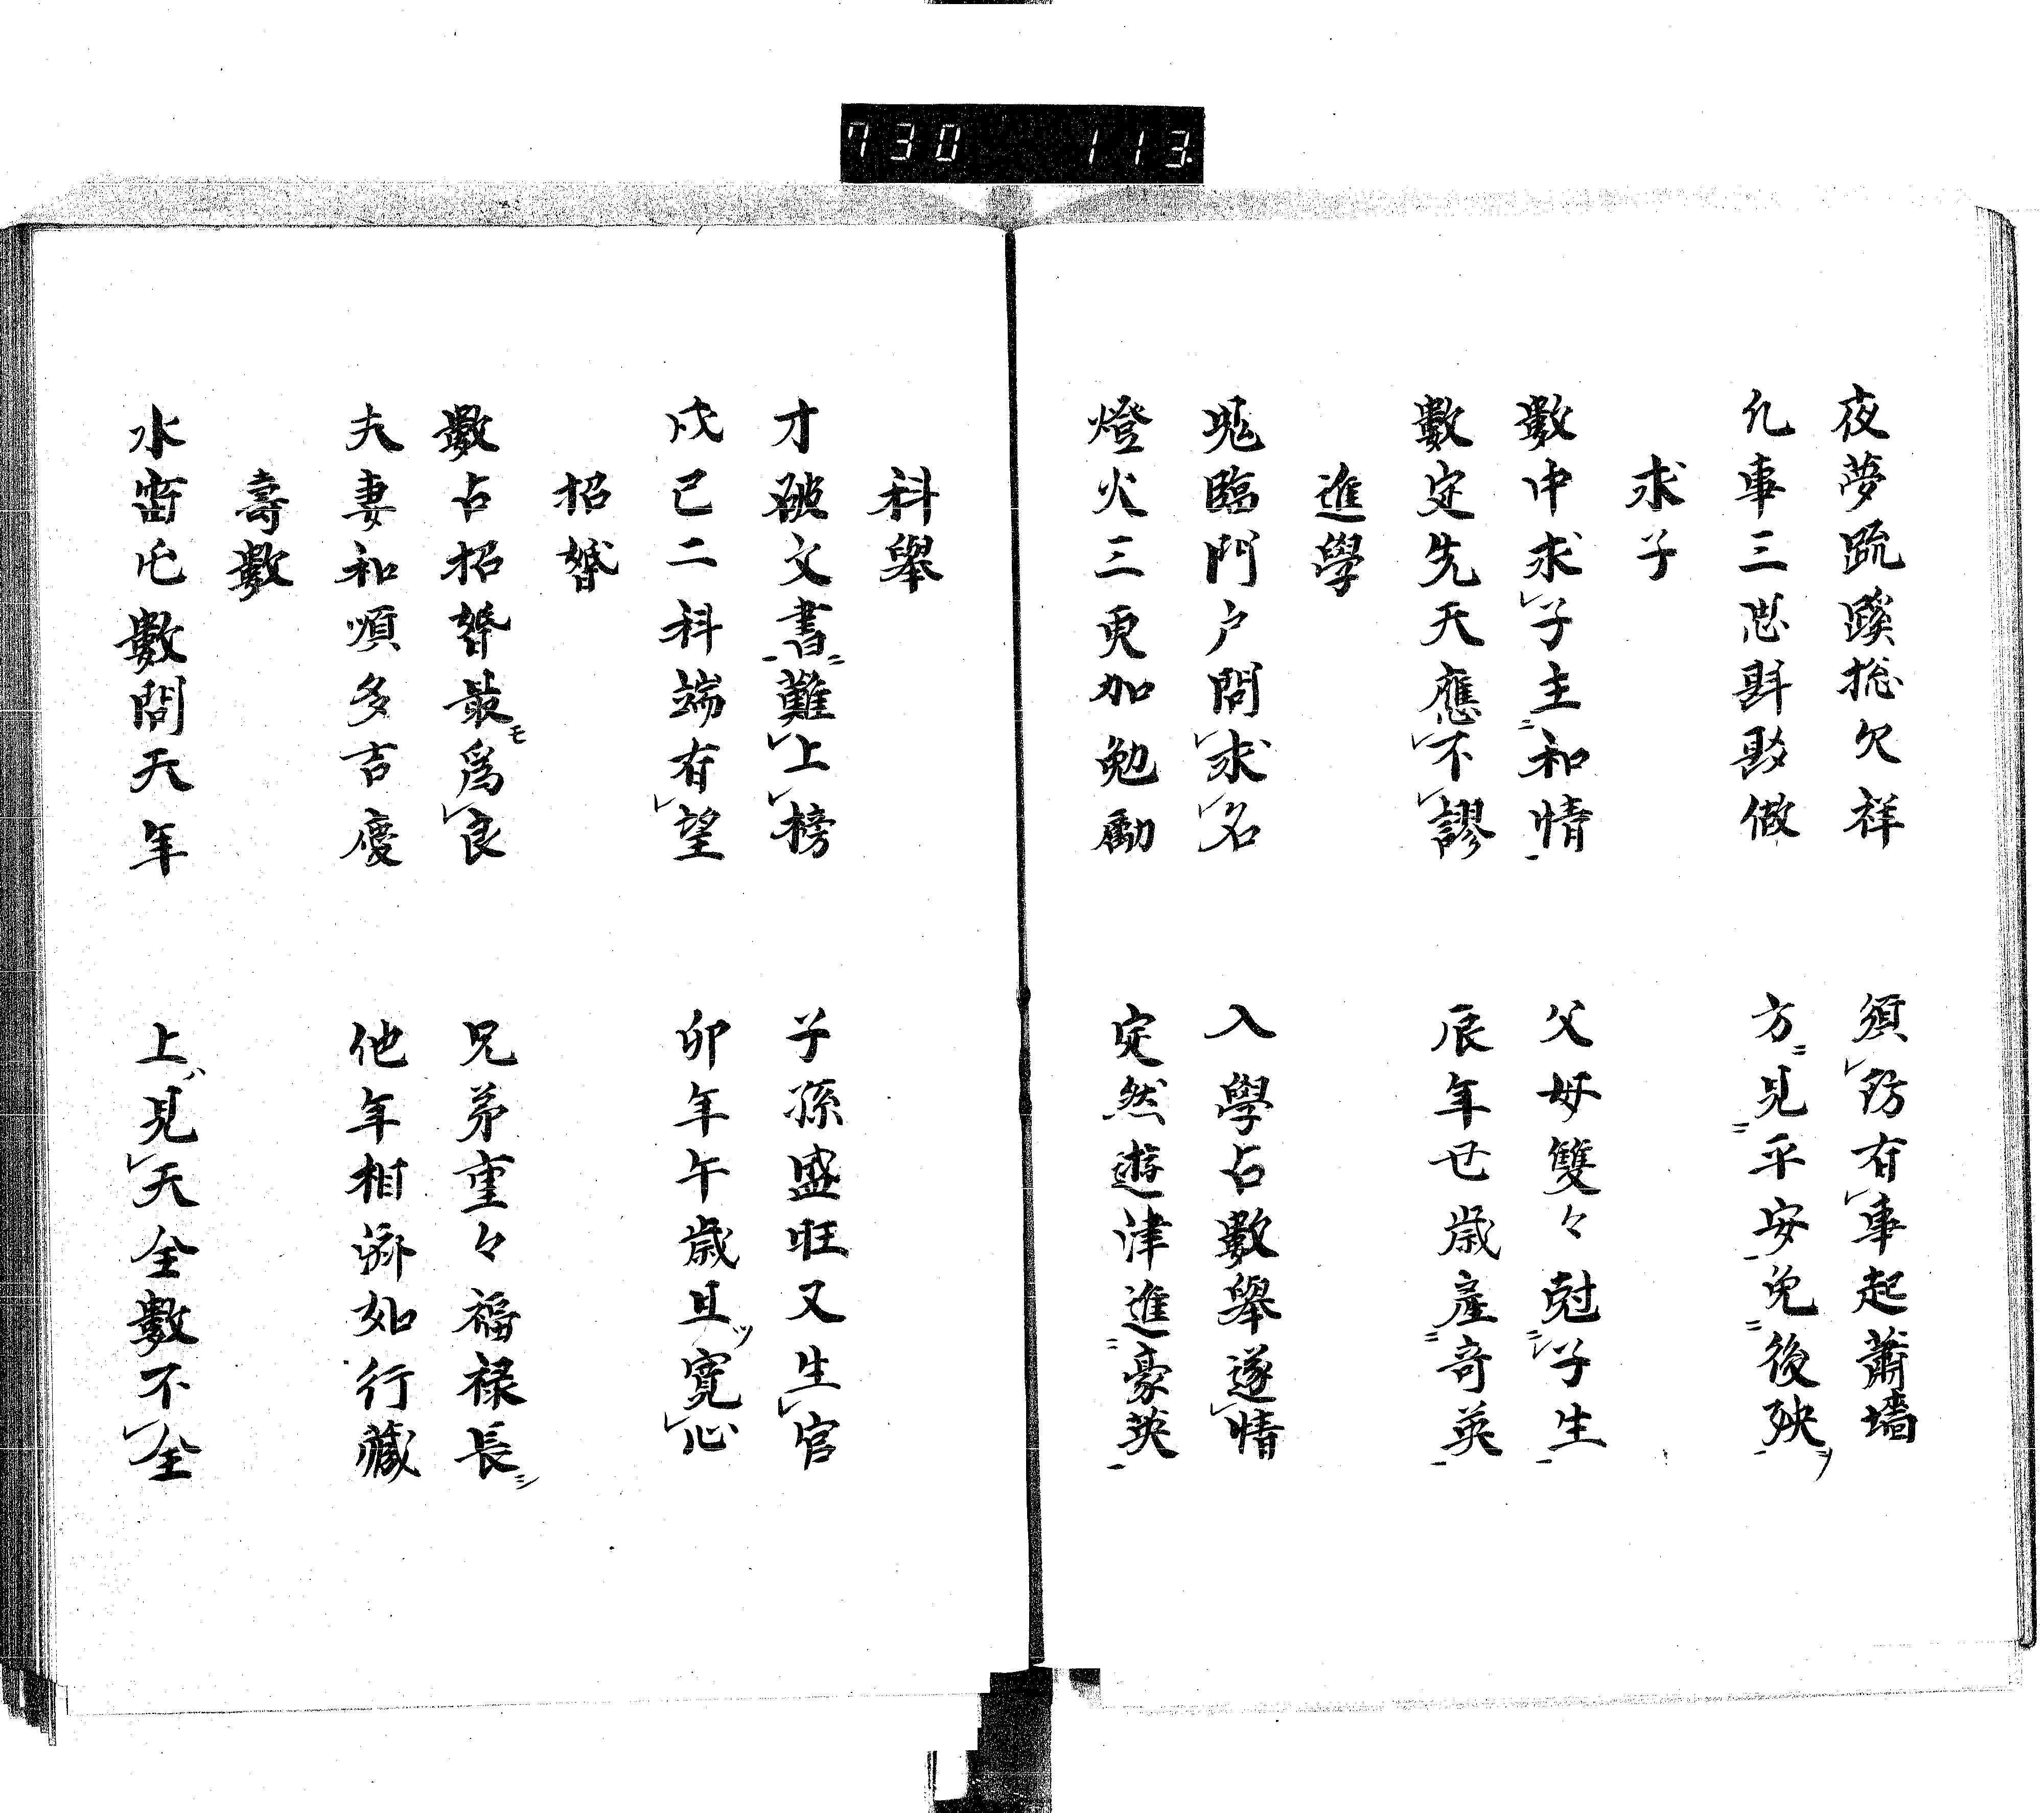 730 113
夜夢跪蹊揔欠祥 須防有事起蕭墻
凢事三思斟酌做 方見平安免後殃
求子
數中求子主和情 父母雙々尅子生
數定先天應不謬 辰年廿歳產奇英
進學
鬼臨門户問求名 入學占數舉遂情
燈火三更加勉勵 定然遊津進豪英
科舉
才破文書難上榜 子孫盛旺又生官
戊己二科端有望 卯年午歳且寬心
招婚
數占招婚最爲良 兄弟重々福禄長
夫妻和順多吉慶 他年相濟如行藏
壽數
水雷屯數問天年 上見天全數不全